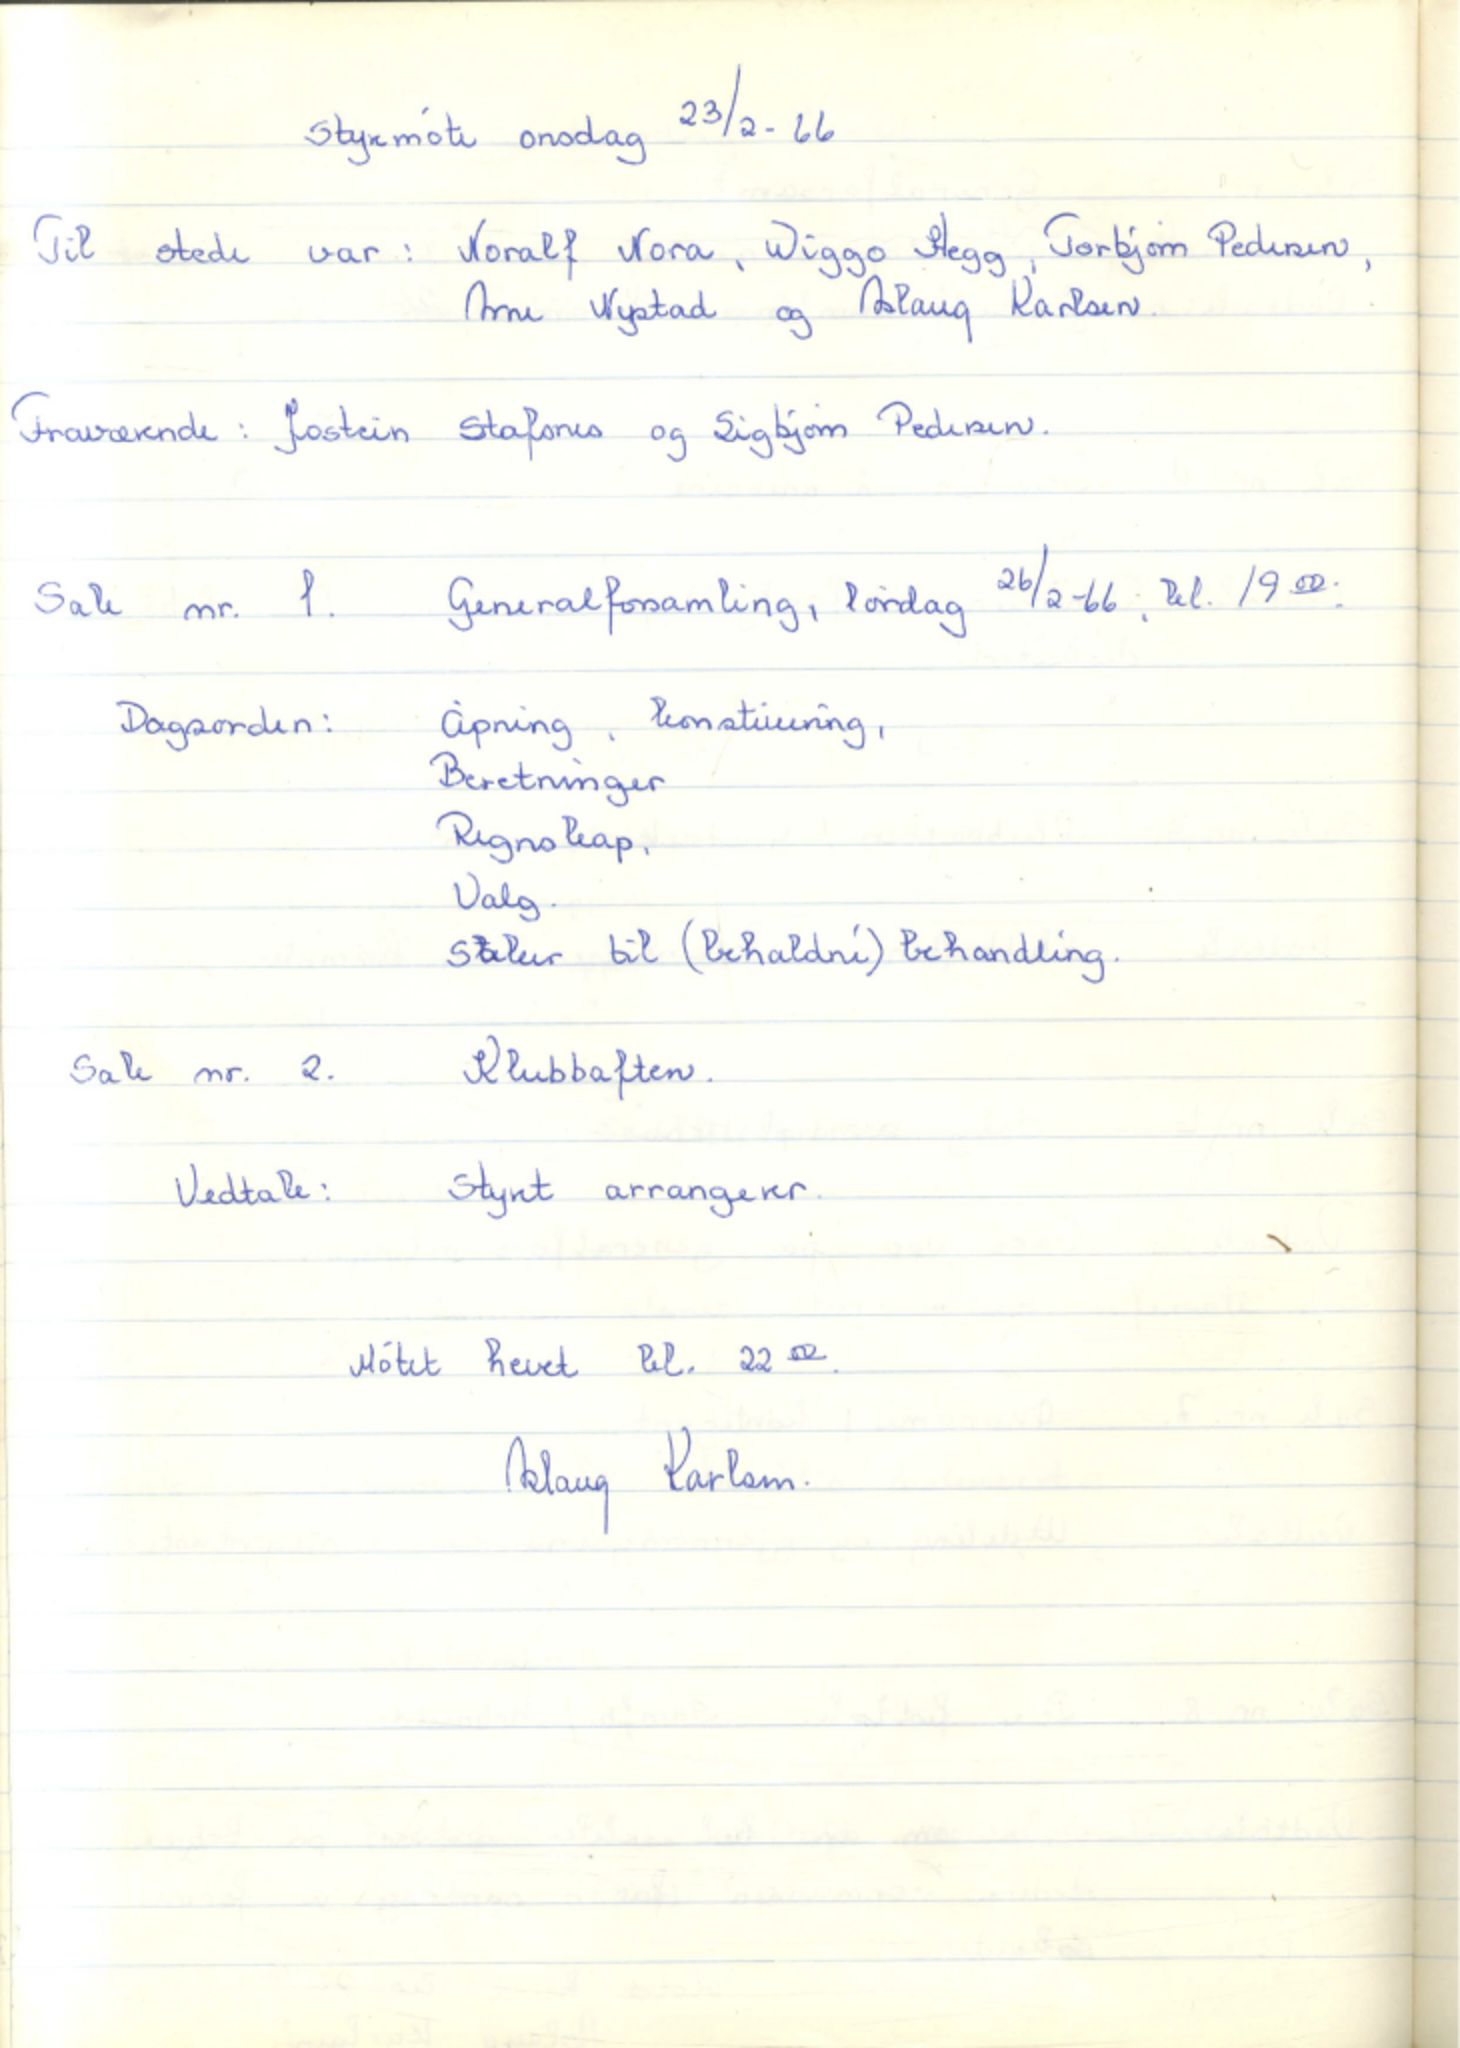 Styremöte onsdag 23/2-66
Til stede var: Noralf Nora, Wiggo Stegg, Torbjörn Pedersen,
Arne Nystad og Aslaug Karlsen.
Fraværende: Jostein Stafsnes og Sigbjörn Pedersen.
Sak nr. 1. Generalforsamling, lördag 26/2-66, kl. 19 00.
Dagsorden: Åpning, konstituering,
Beretninger
Regnskap.
Valg.
Saker til (behaldni) behandling.
Sak nr. 2. Klubbaften.
Vedtak: Styret arrangerer.
Mötet hevet kl. 22 00.
Aslaug Karlsen.